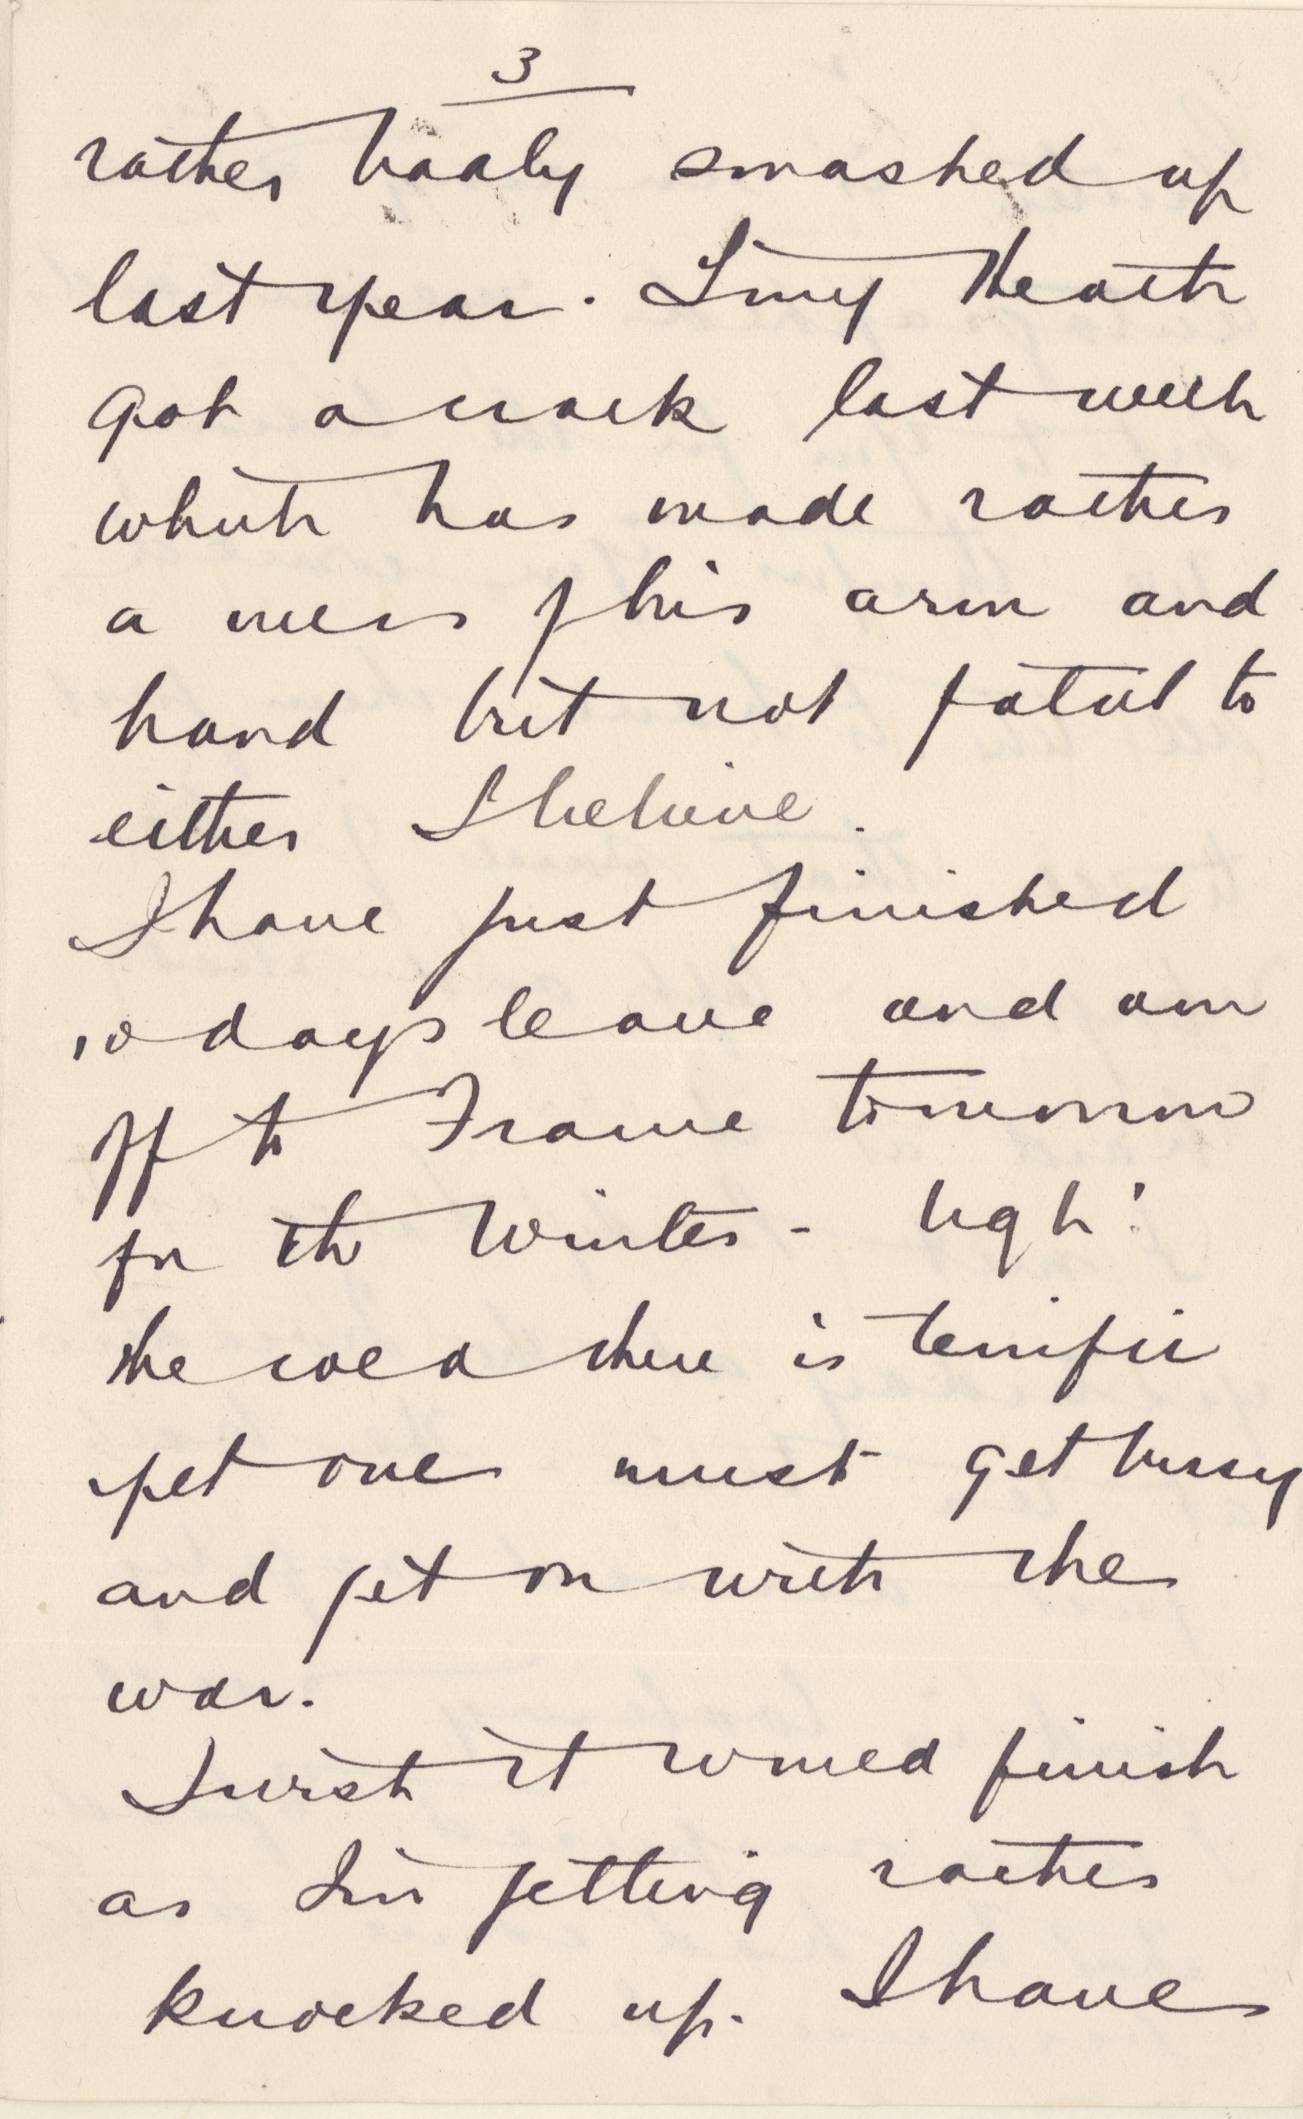 3
rather badly smashed up
last year. Limy Heath
got a crack last week
which has made rather
a mess of his arm and
hand but not fatal to
either I believe.
I have just finished
10 days leave and am
off to France tomorrow
for the Winter - Ugh!
the cold there is terrific
yet one must get busy
and get on with the
war.
I wish it would finish
as I'm getting rather
knocked up. I have